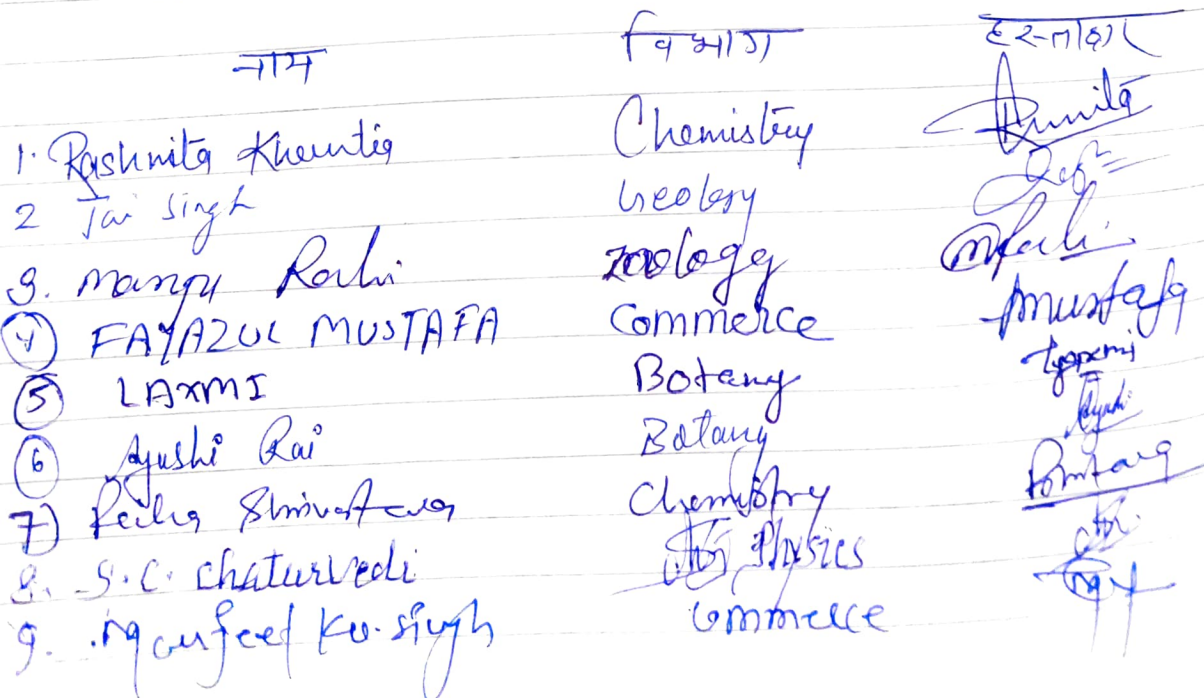 नाम विभाग हस्ताक्षर
1. Rashmita Khuntia Chemistry
2 Jai Singh Geology
3. Manju Rahi zoology
4 FAYAZUL MUSTAFA Commerce Mustafa
5 LAXMI Botany
6 Ayushi Rai Botany Ayushi
7) Shrivastava Chemistry
8. S.C. Chaturvedi Physics
9. Ku. Singh Commerce